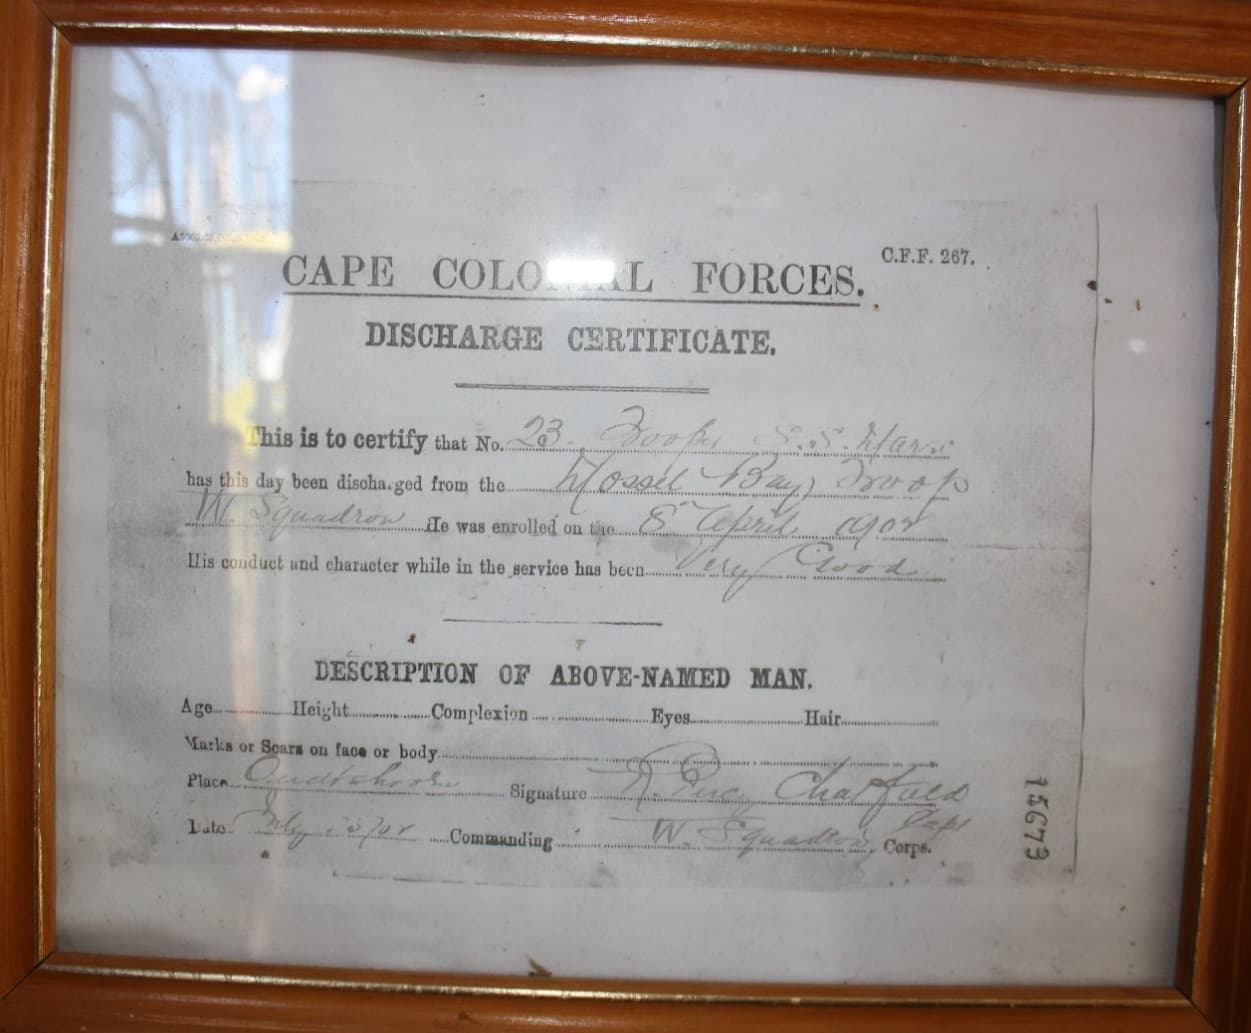 C.F.F. 267.
CAPE COLONIAL FORCES.
DISCHARGE CERTIFICATE.
This is to certify that No. 23. Trooper S.S.
has this day been discharged from the Mossel Bay Troop
W. Squadron He was enrolled on the 8th April 1902
His conduct and character while in the service has been Very Good
DESCRIPTION OF ABOVE-NAMED MAN.
Age Height Complexion Eyes Hair
Marks or Scars on face or body
Place Oudtshoorn Signature R. Percy Chatfield
Capt
Date July Commanding W. Squadron Corps.
15673